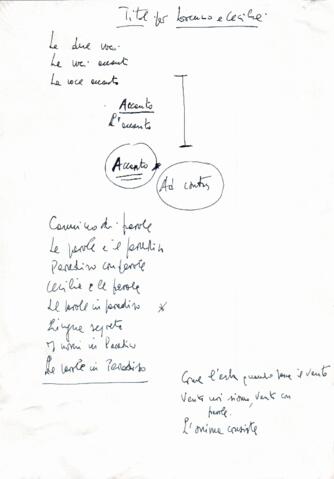 Titoli per Lorenzo e Cecilia
Le due voci
Le voci accanto
La voce accanto
Accanto
L'accanto
Accanto
Ad cantus
Cammino di parole
Le parole e il paradiso
Paradiso con parole
Cecilia e le parole
Le parole in paradiso
Lingua segreta
I nomi in Paradiso
Le parole in Paradiso
Come l'erba quando viene il vento
Vento noi siamo, vento con
parole.
L'anima consiste